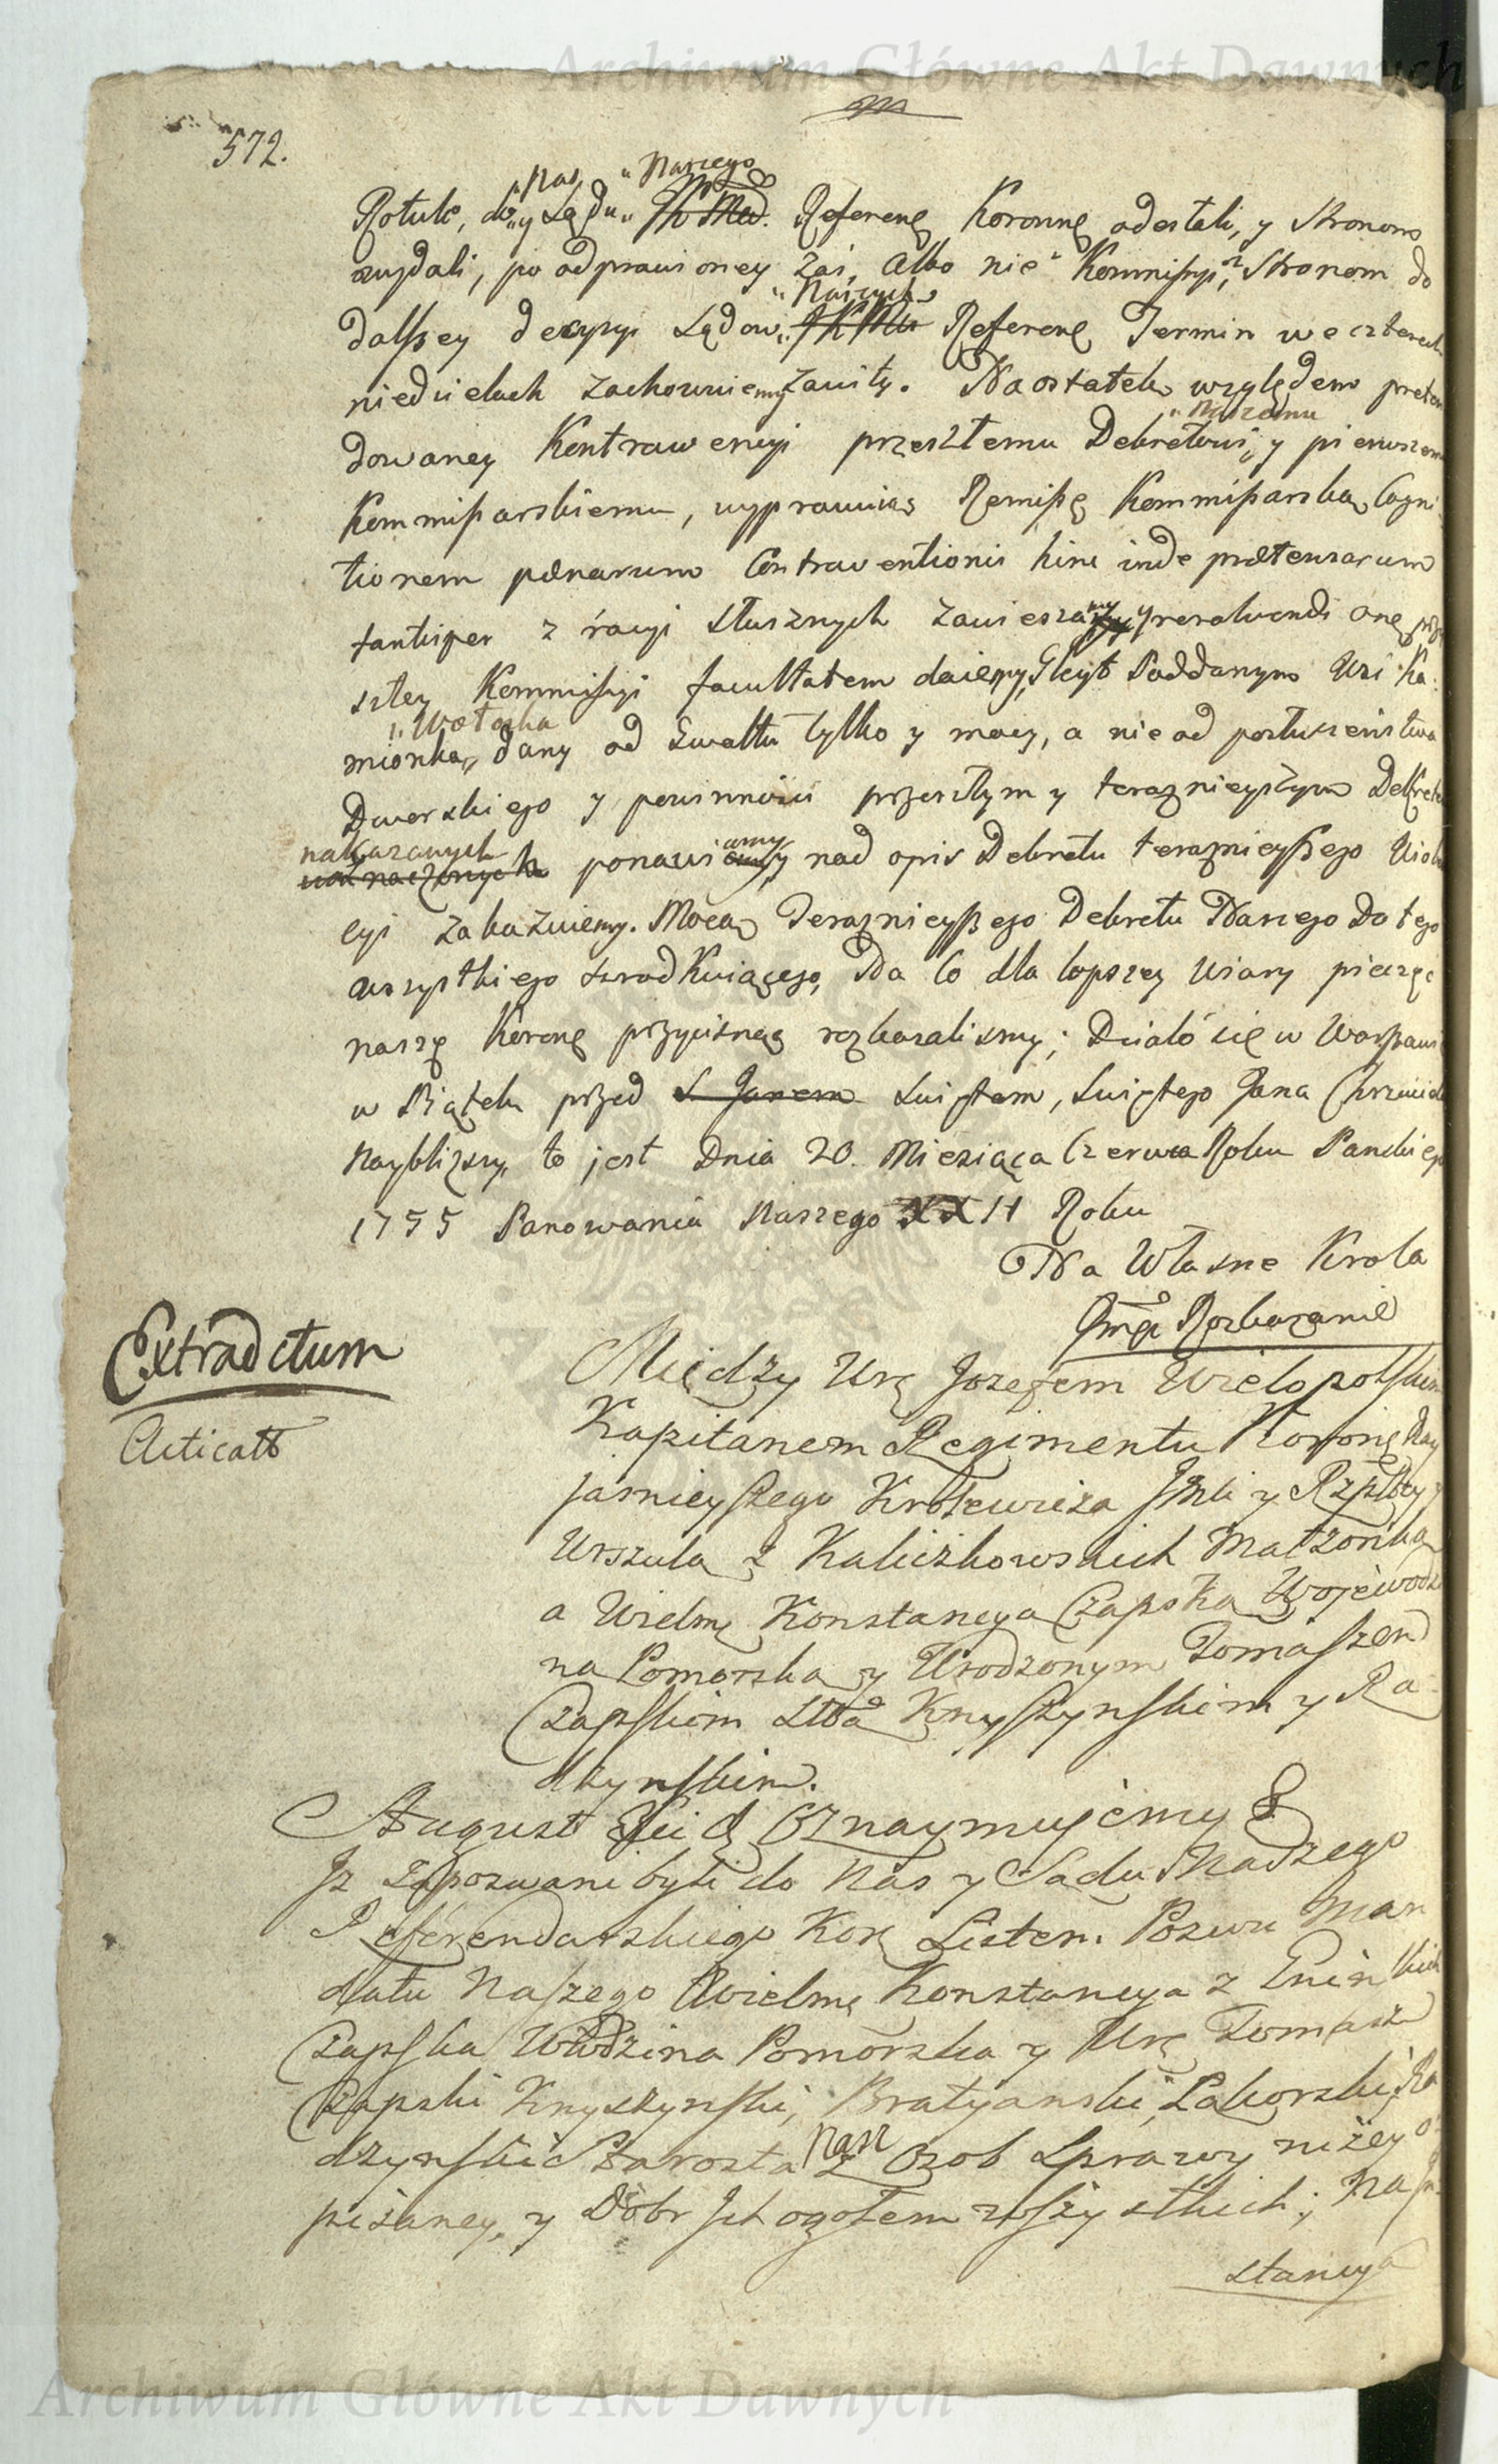 Archiwum Główne Akt Dawnych
572.
"Nas "Naszego
Rotule, do "y Sądu" J K Mci Referenę Koronnę odesłali, y Stronom
wydali, po odprawioney zaś, albo nie Kommissyi, Stronom do
"Naszych
dalszey decyzyi Sądow J K Mci Referenę Termin we czterech
niedzielach zachowuiemy zawity. Naostatek względem preten
"Naszemu
dowaney Kontrawencyi przeszłemu Dekretowi, y pierwszemu
Kommissarskiemu, wyprawuiąc Remissę Kommissarską Cogni
tionem paenarum Contraventionis hinc inde praetensarum
tantisper z racyi słusznych zawieszamy, y resolwendi onę przy
szłey Kommissyi facultatem daiemy, Gleyt Poddanym Wsi Ka
"Wołoska
mionka, dany od gwałtu tylko y mocy, a nie od posłuszeństwa
Dworskiego y powinności przeszłym y teraznieyszym Dekretem
nakazanych
wyznaczonych ponawiamy y nad opis Dekretu teraznieyszego Wiolen
cyi zakazuiemy. Mocą Teraznieyszego Dekretu Naszego Do tego
wszystkiego srodkuiącego, Na co dla lepszey wiary pieczęć
naszę Koronę przycisnąć rozkazalismy; Działo się w Warszawie
w Piątek przed S. Janem Swiętem, Swiętego Jana Chrzciciela
Naybliższy, to jest Dnia 20. Miesiąca Czerwca Roku Panskiego
1755 Panowania Naszego XXII Roku
Na Własne Krola
Jmci Rozkazanie
Extraditum
Acticatt
Między Urę Jozefem Wielopolskim
Kapitanem Regimentu Koronę Nay
jasnieyszego Krolewicza Jmci y Rzpltey y
Urszulą z Kaliszkowskich Małzonką
a Wielmę Konstancyą Czapską Wojewodzi
ną Pomorską y Urodzonym Tomaszem
Czapskim Sttą Knyszynskim y Ra
dzynskim.
August Trzeci Oznaymujemy
Iz zapozwani byli do Nas y Sądu Naszego
Referendarskiego Korę Listem Pozwu Man
datu Naszego Wielmę Konstancya z Gninskich
Czapska Wwdzina Pomorska y Urę Tomasz
Czapski Knyszynski, Bratyanski, Laborski, Ra
dzynski Starosta Nasz z Osob Sprawy nizey o
pisaney, y Dobr Jch ogołem wszystkich; Na Jn
stancyą
Archiwum Główne Akt Dawnych